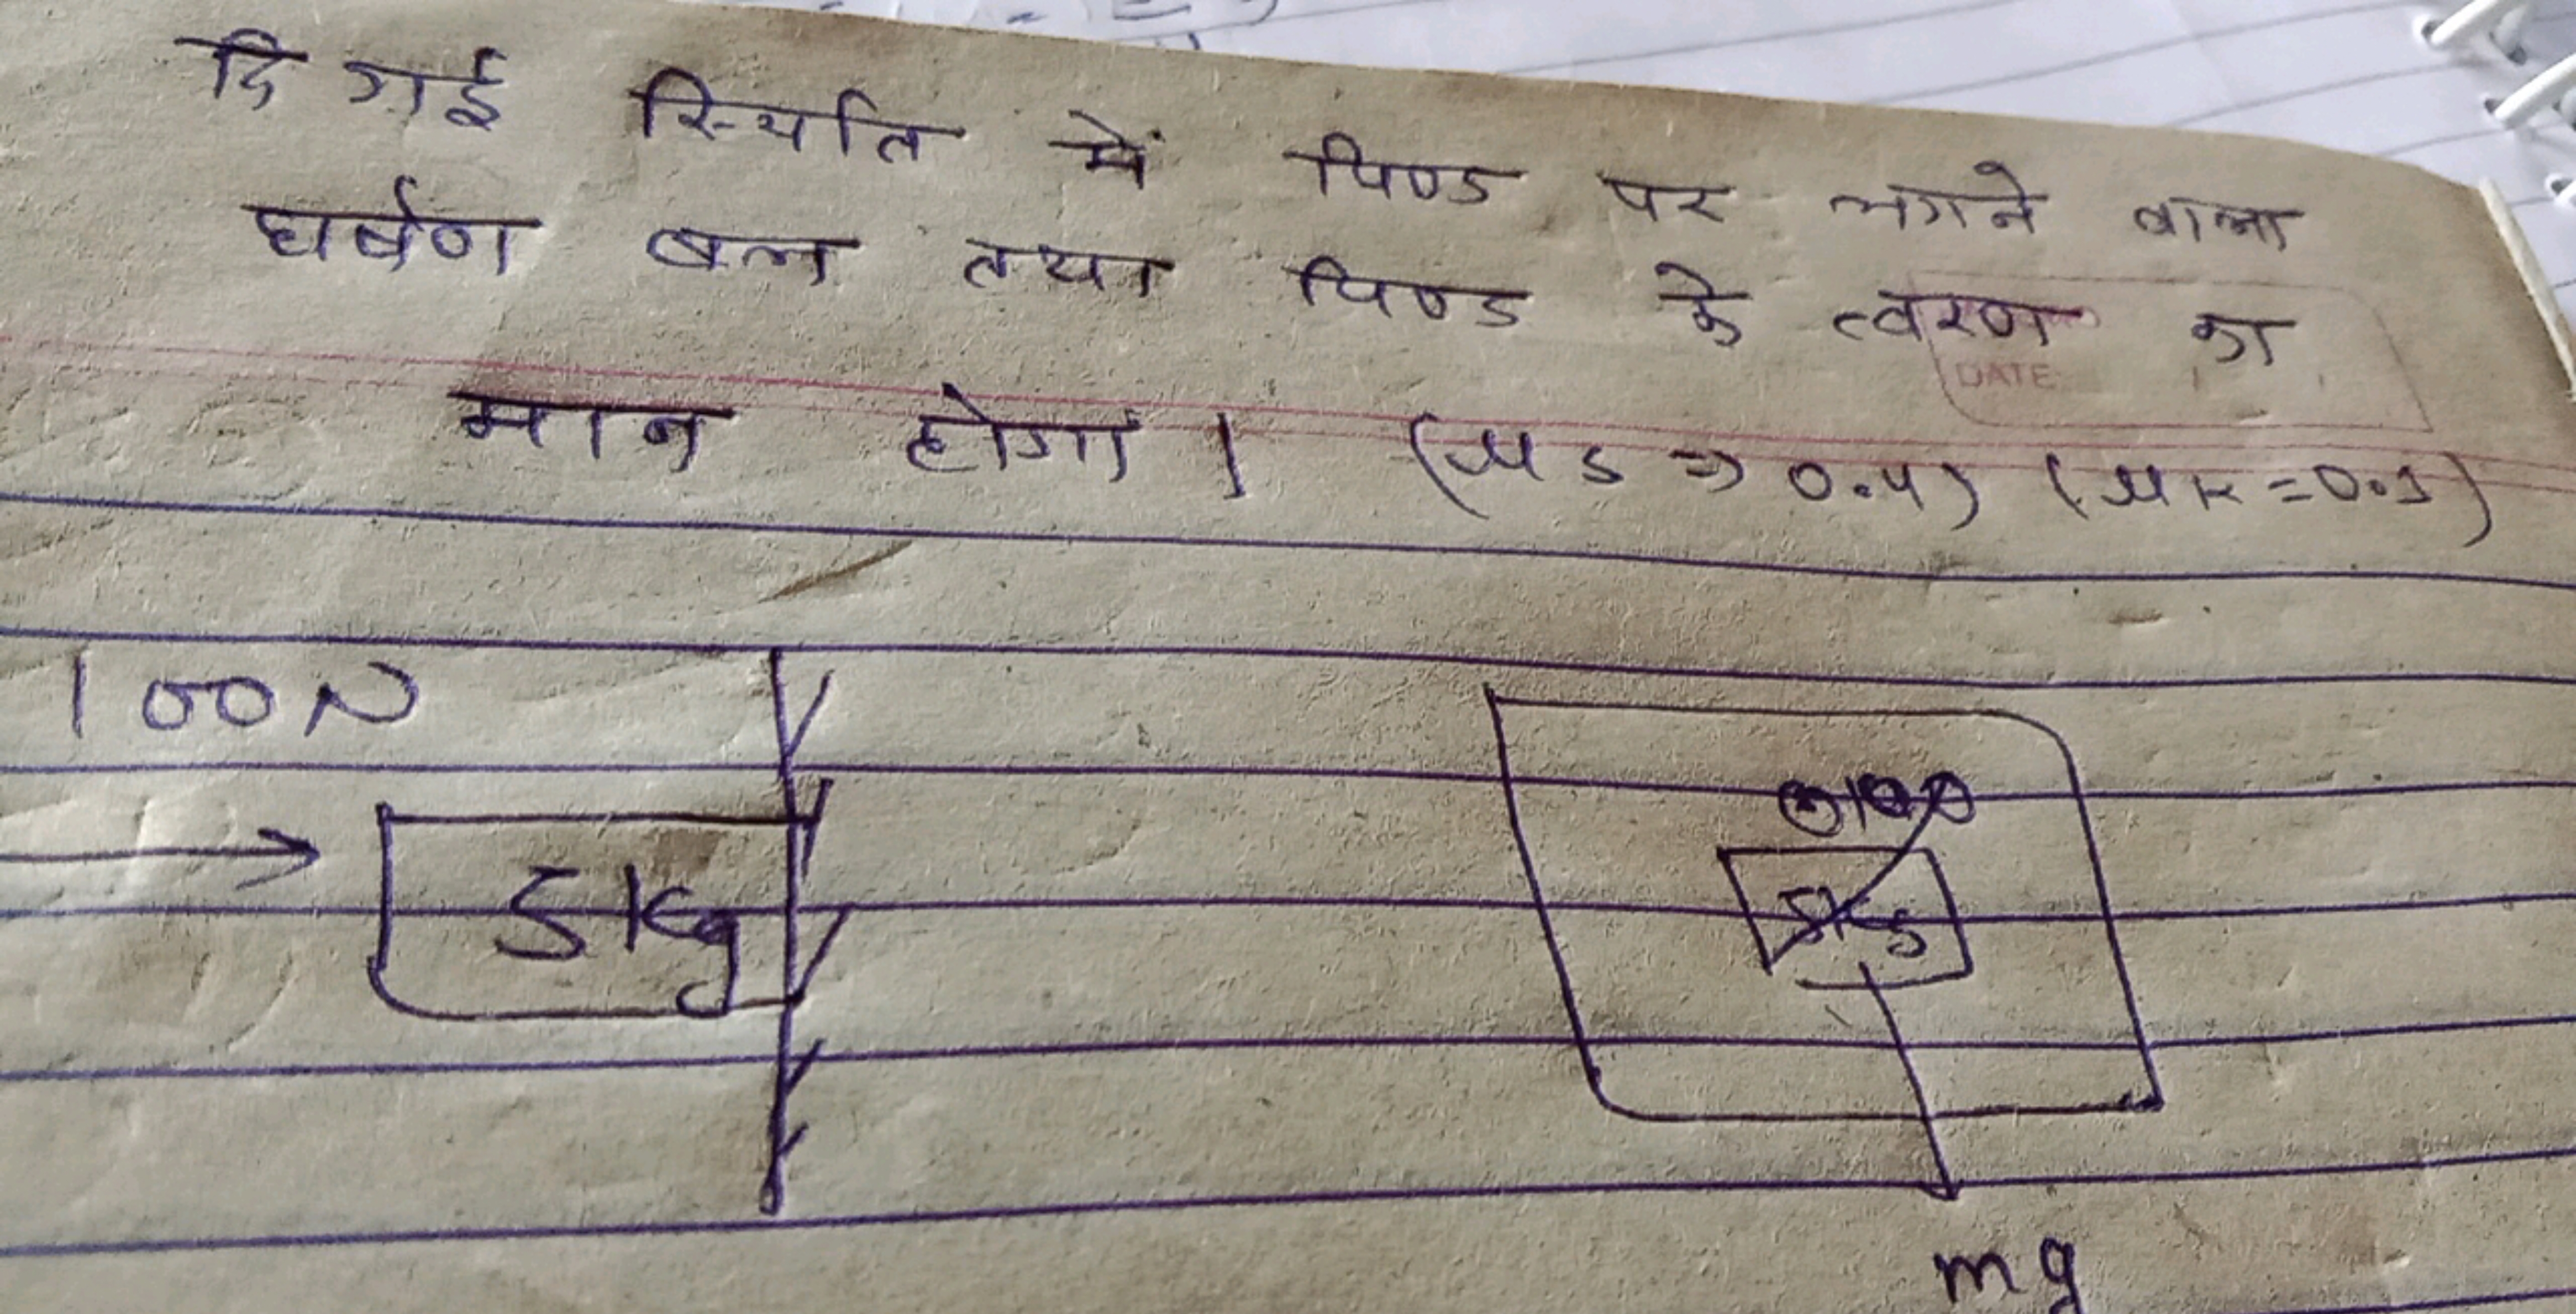 दि गई स्थिति में पिण्ड पर लगने वाला
घर्षण बल तथा पिण्ड के त्वरण का
DATE
मान होगा । (μs => 0.4) (μk = 0.1)
100N
5kg
5kg
mg